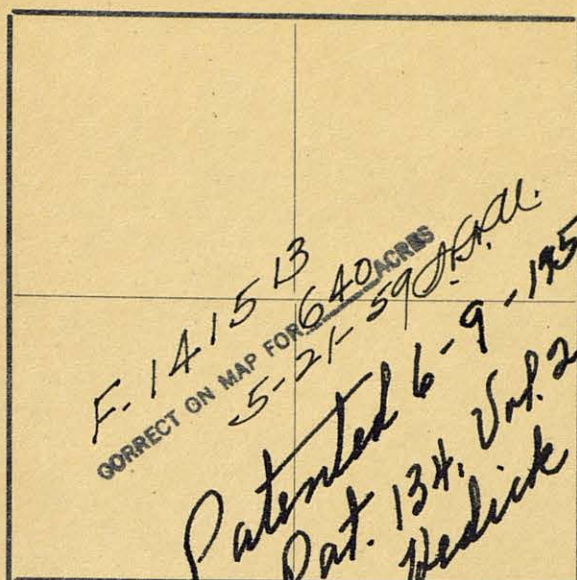 F. 141513
CORRECT ON MAP FOR 640 ACRES
5-21-59
Patented 6-9-195
Pat. 134, Vol. 2
Hedick